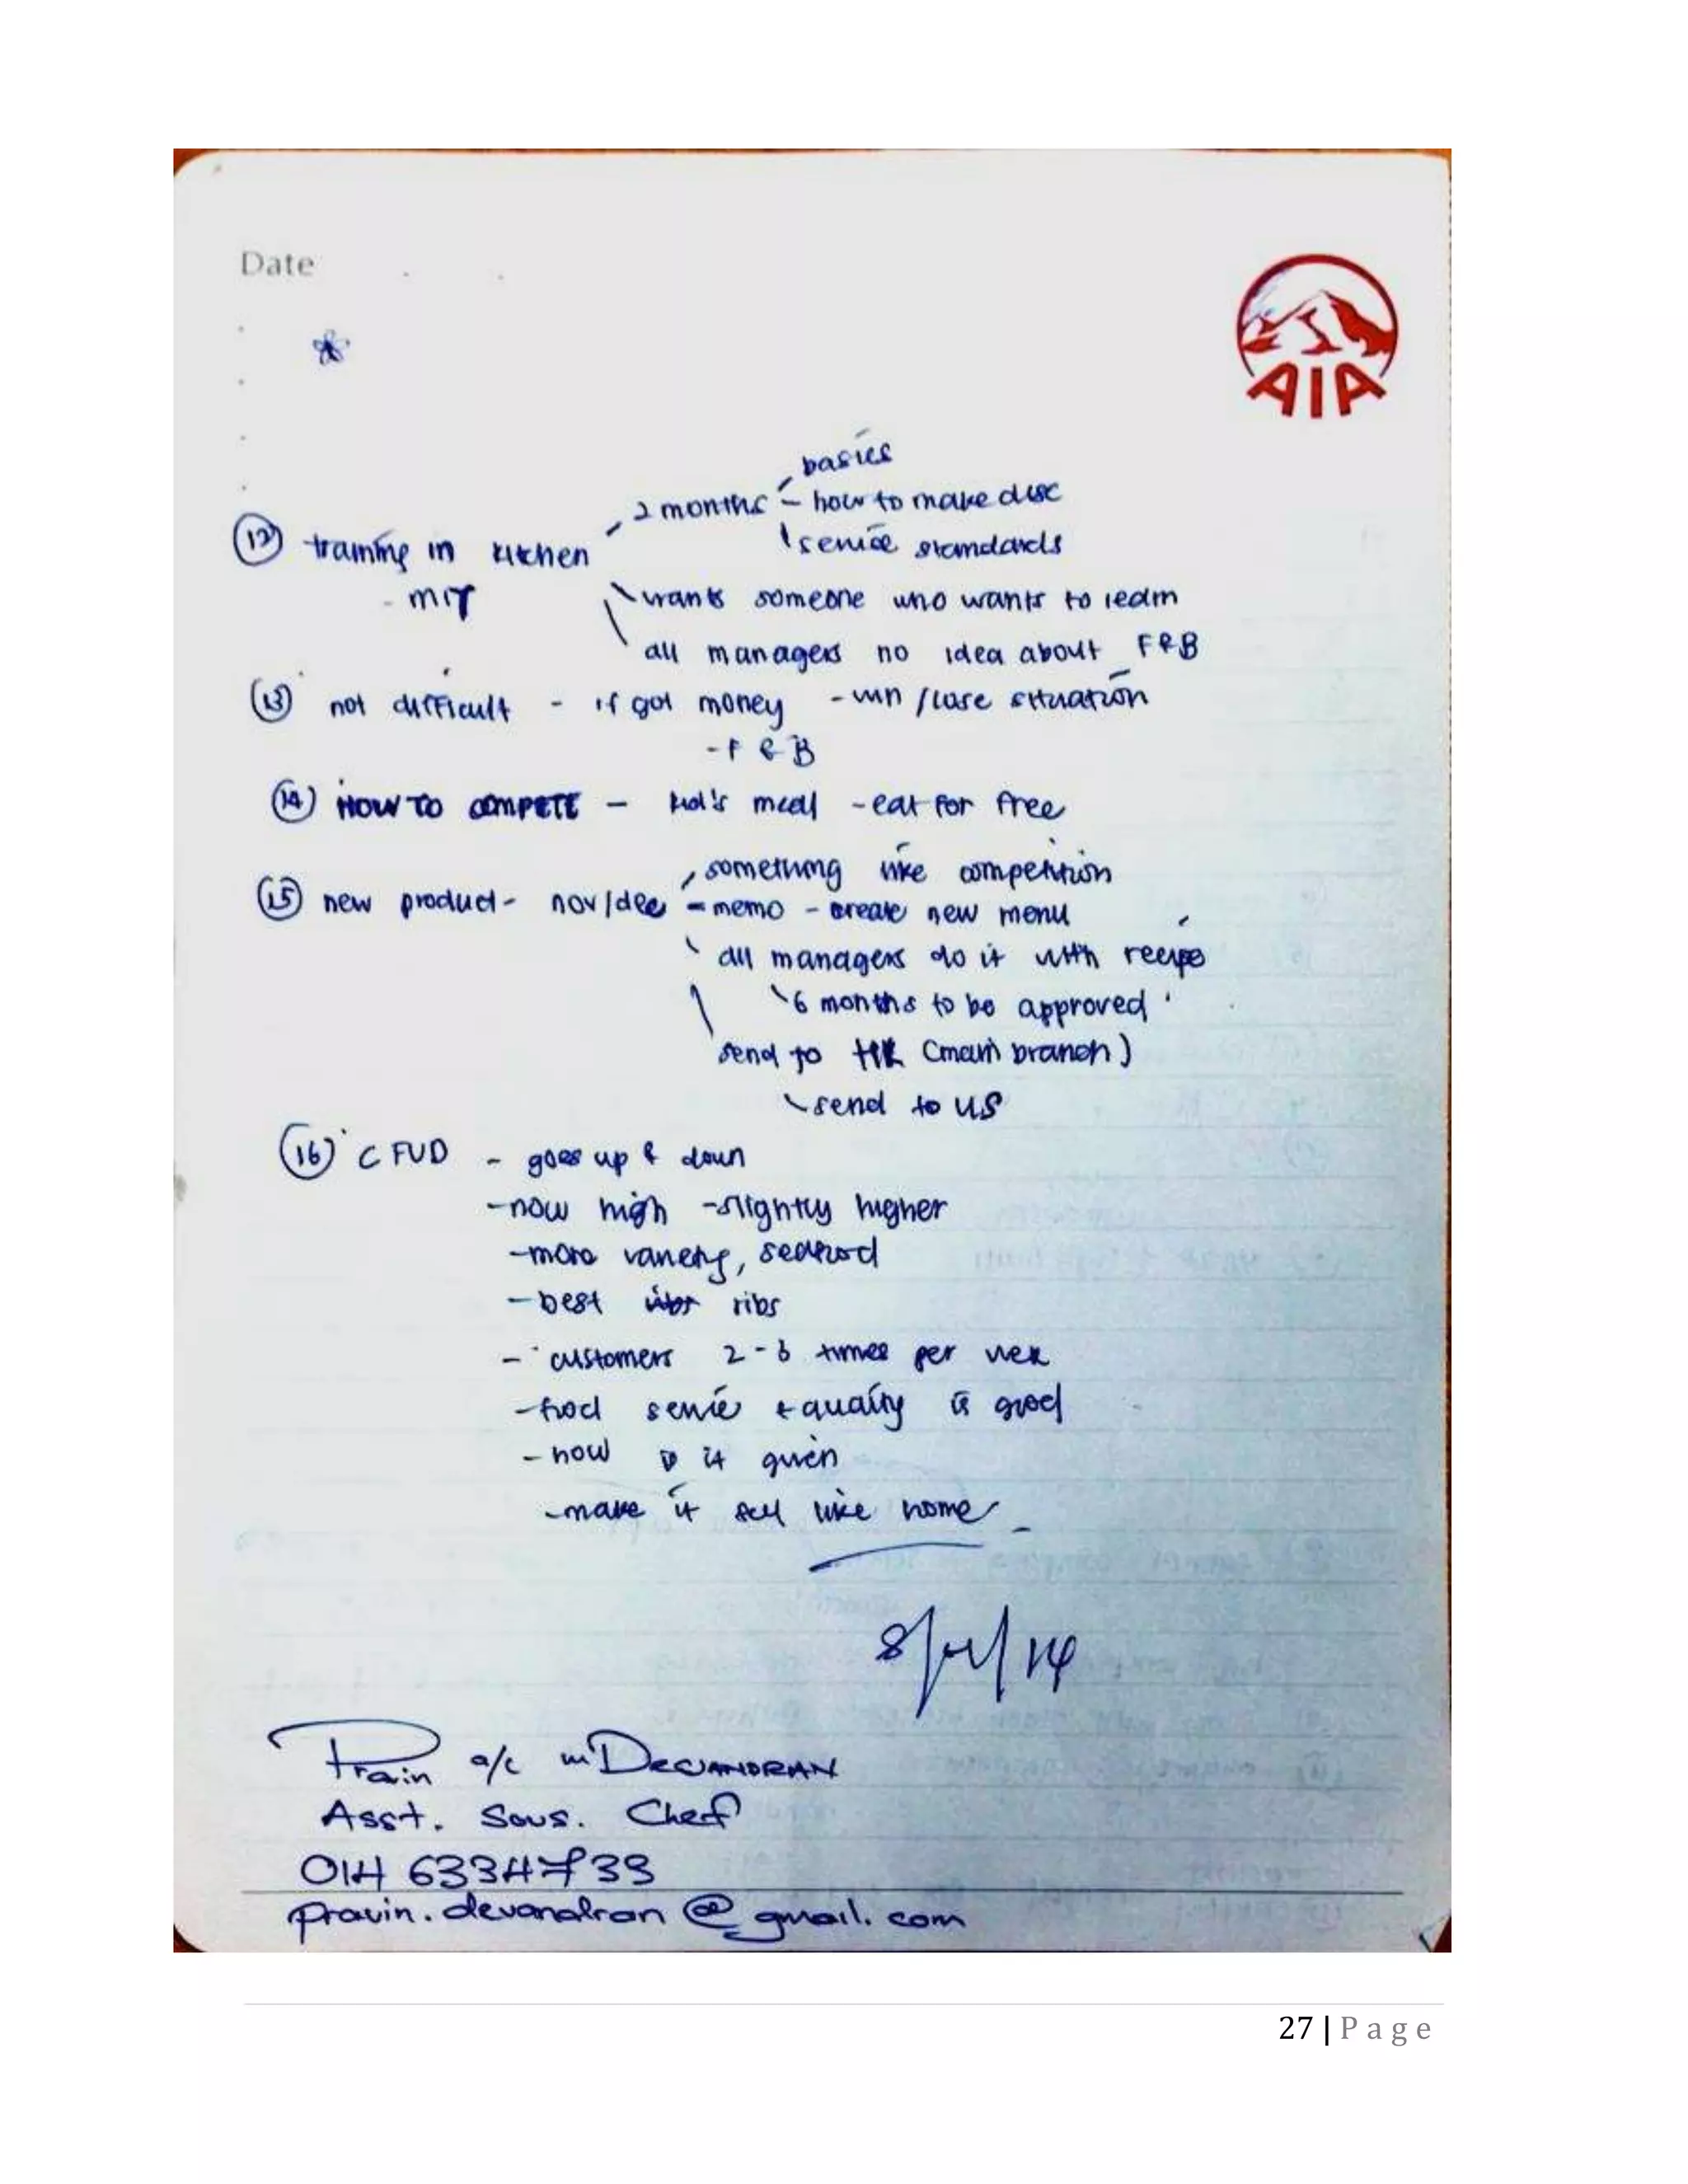 Date
AIA
basics
2 months - how to make disc
service standards
(12) training in kitchen
- MIT
wants someone who wants to learn
all managers no idea about F&B
(13) not difficult - if got money - win / lose situation
- F & B
(14) HOW TO COMPETE - kid's meal - eat for free
something like competition
(15) new product - nov/dec - memo - create new menu
all managers do it with recipe
6 months to be approved
send to HK (main branch)
send to US
(16) C FUD - goes up & down
- now high - slightly higher
- more variety, seafood
- best ribs
- customers 2-3 times per week
- food service & quality is good
- how is it given
- make it feel like home
8/ /14
a/c Devandran
Asst. Sous. Chef
014 6334739
pravin.devandran@gmail.com
27 | Page